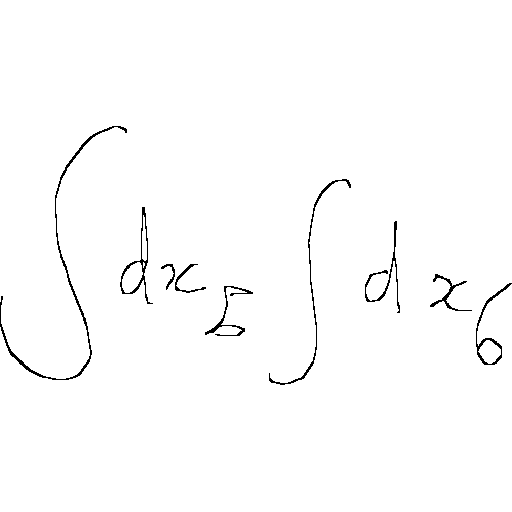 ∫dx₅∫dx₆